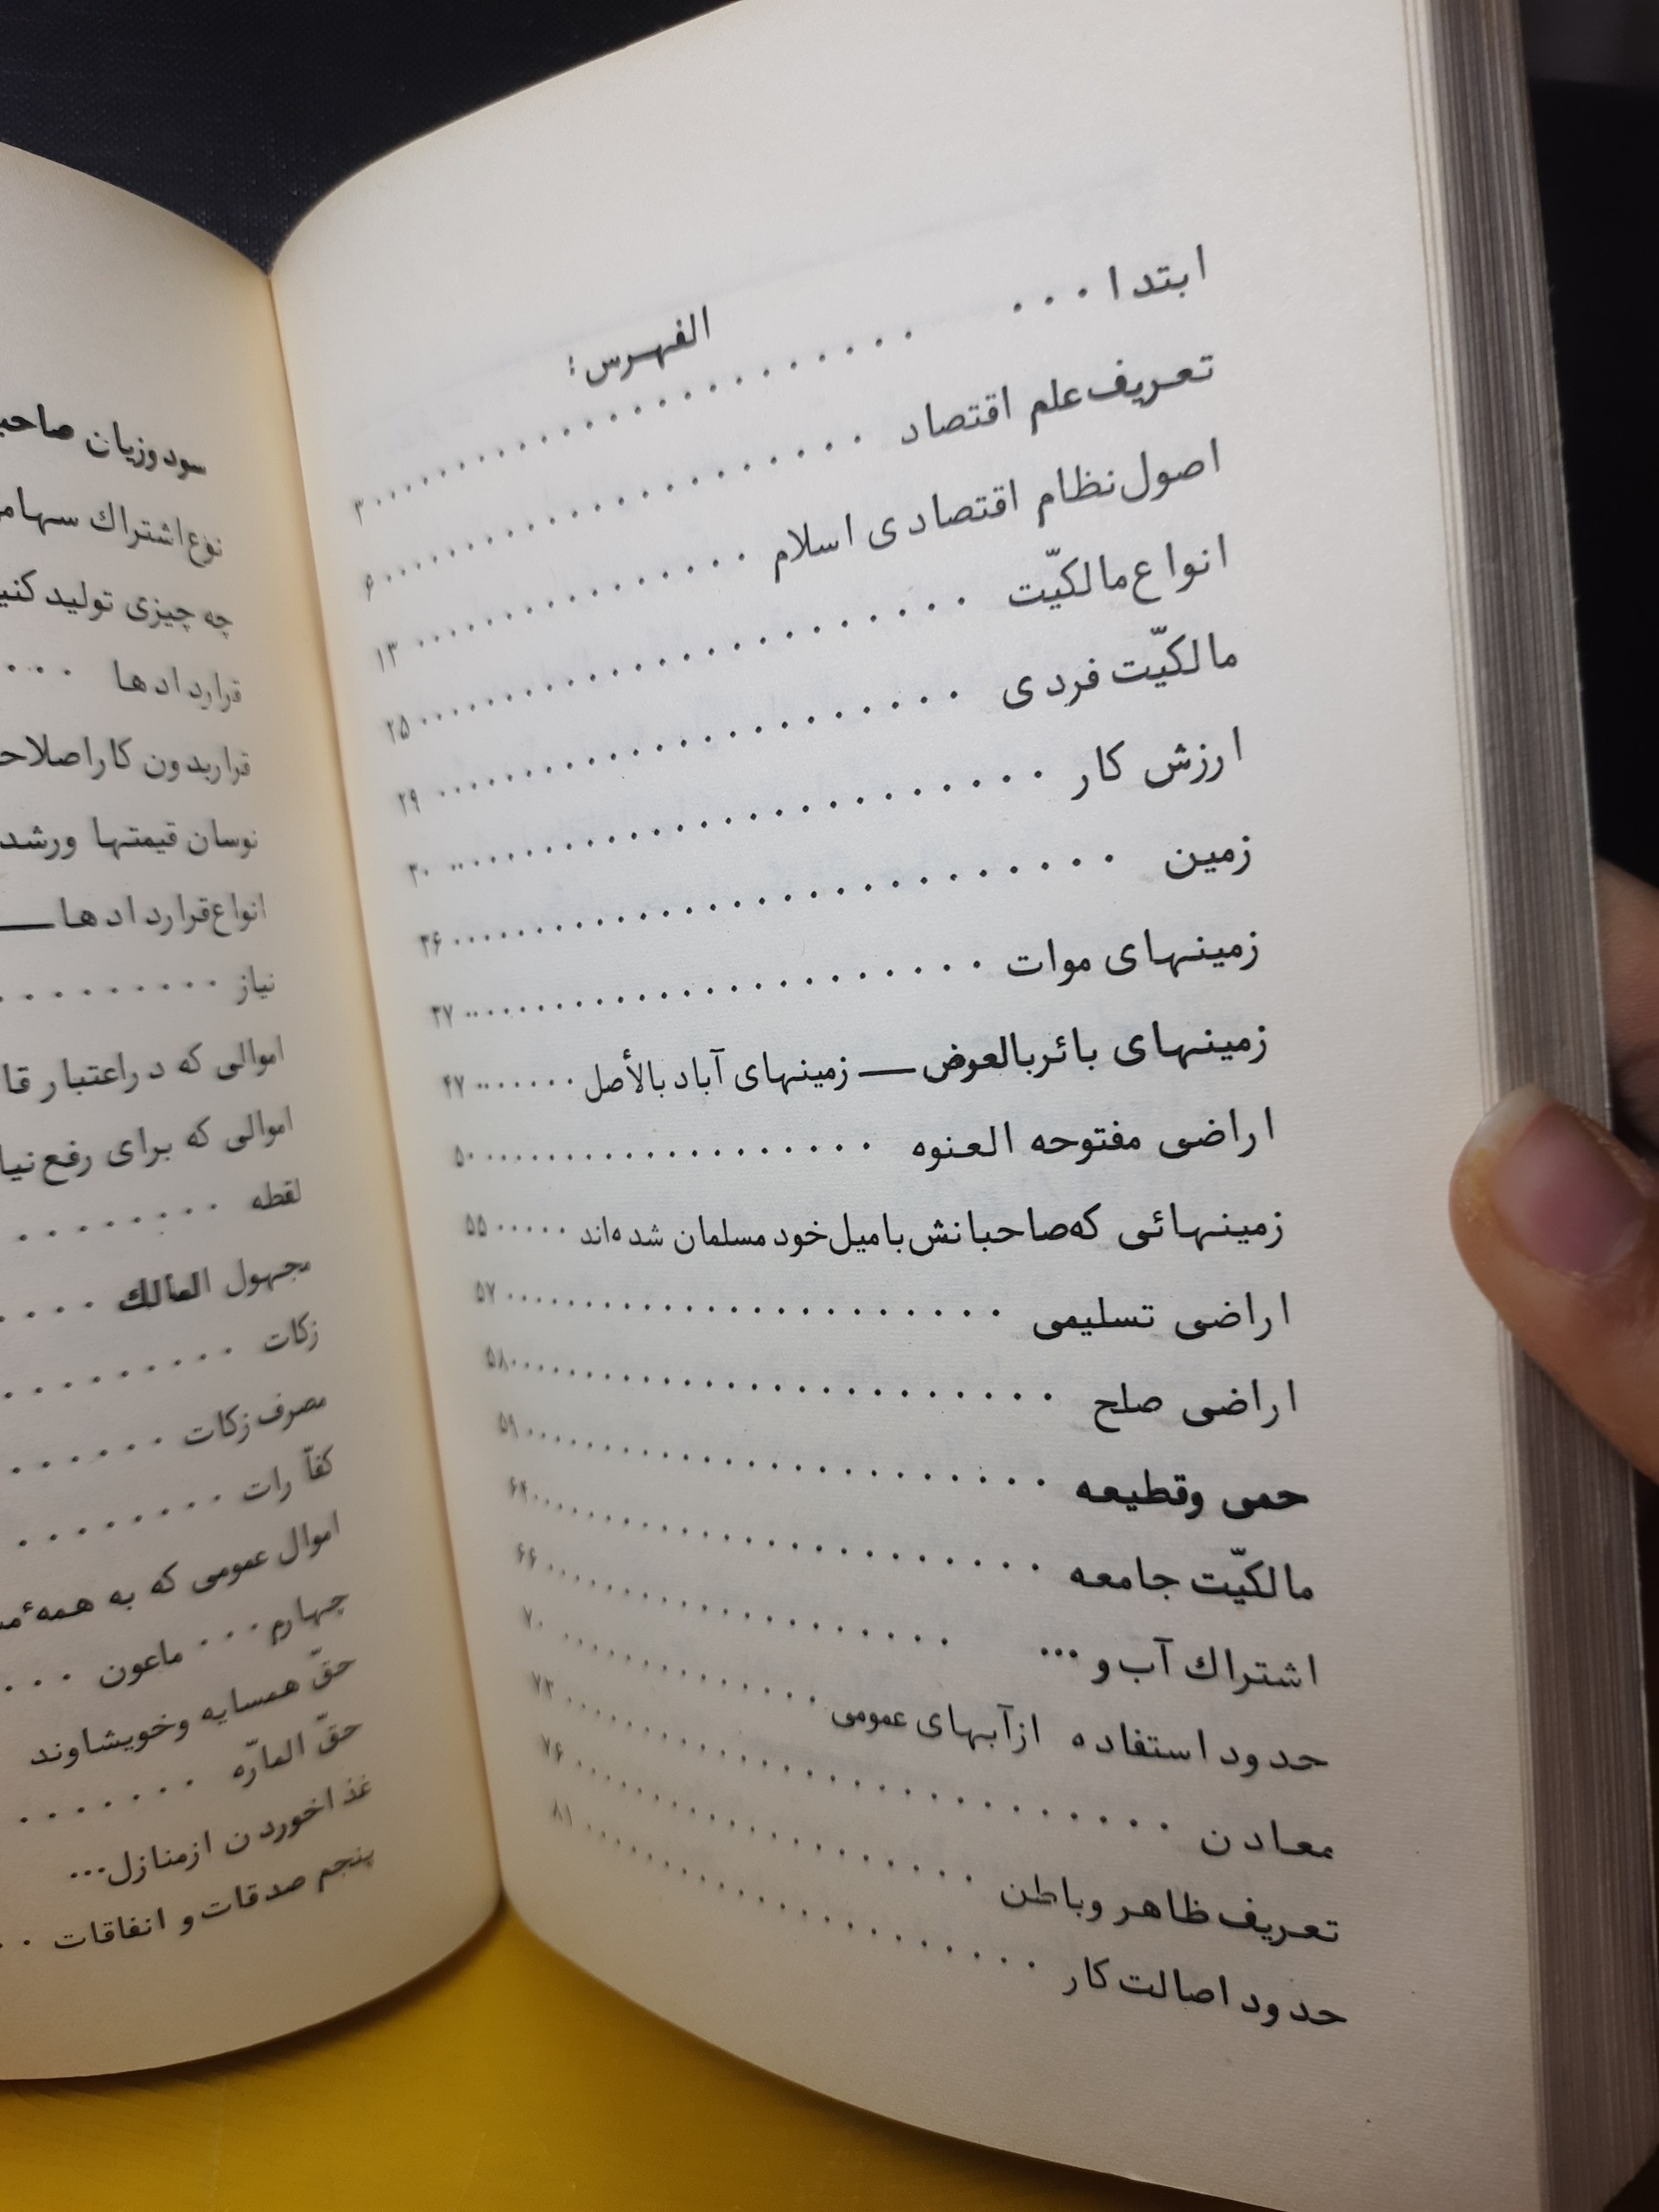 الفهرس:
ابتدا ... ۳
تعریف علم اقتصاد ۶
اصول نظام اقتصادی اسلام ۱۳
انواع مالکیّت ۲۵
مالکیّت فردی ۲۹
ارزش کار ۳۰
زمین ۳۶
زمینهای موات ۳۷
زمینهای بائر بالعوض ـــ زمینهای آباد بالأصل ۴۷
اراضی مفتوحه العنوه ۵۰
زمینهائی که صاحبانش با میل خود مسلمان شده‌اند ۵۵
اراضی تسلیمی ۵۷
اراضی صلح ۵۸
حمی وقطیعه ۵۹
مالکیّت جامعه
اشتراك آب و ... ۶۶
حدود استفاده ازآبهای عمومی ۷۰
معادن ۷۳
تعریف ظاهر وباطن ۷۶
حدود اصالت کار ۸۱
سود وزیان
نوع اشتراك
چه چیزی تولید
قراردادها
قراربدون کار
نوسان قیمتها ورشد
انواع قراردادها ـــ
نیاز
اموالی که دراعتبار
اموالی که برای رفع
لقطه
مجهول المالك
زکات
مصرف زکات
کفّارات
اموال عمومی که به همهٔ
چهارم ... ماعون
حقّ همسایه وخویشاوند
حقّ المارّه
غذاخوردن ازمنازل...
پنجم صدقات و انفاقات